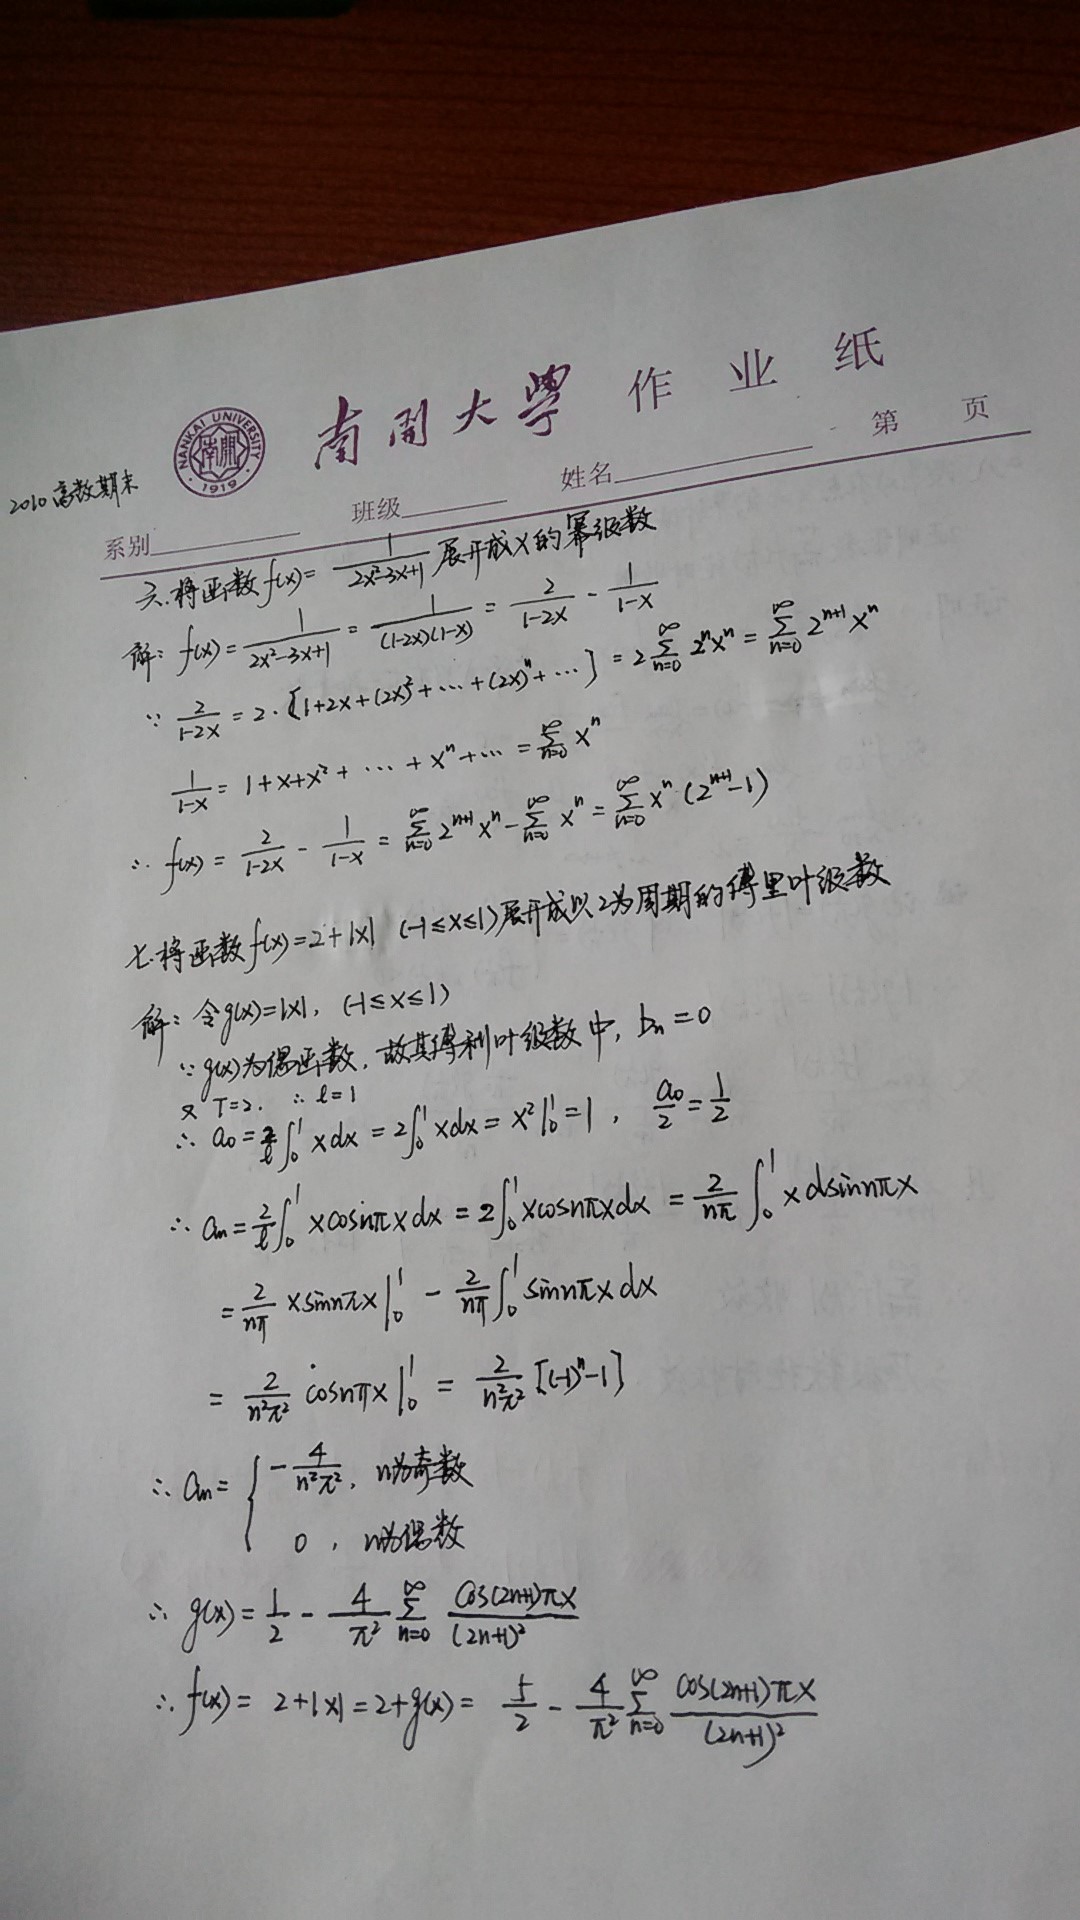 NANKAI UNIVERSITY
南開
1919
南開大學 作业纸
2010高数期末
系别 班级 姓名 第 页
六.将函数f(x)=1/(2x²-3x+1)展开成x的幂级数
解: f(x)=1/(2x²-3x+1)=1/((1-2x)(1-x))=2/(1-2x)-1/(1-x)
∵ 2/(1-2x)=2·[1+2x+(2x)²+⋯+(2x)ⁿ+⋯]=2∑_{n=0}^{∞}2ⁿxⁿ=∑_{n=0}^{∞}2^{n+1}xⁿ
1/(1-x)=1+x+x²+⋯+xⁿ+⋯=∑_{n=0}^{∞}xⁿ
∴ f(x)=2/(1-2x)-1/(1-x)=∑_{n=0}^{∞}2^{n+1}xⁿ-∑_{n=0}^{∞}xⁿ=∑_{n=0}^{∞}xⁿ(2^{n+1}-1)
七.将函数f(x)=2+|x| (-1≤x≤1)展开成以2为周期的傅里叶级数
解: 令g(x)=|x|, (-1≤x≤1)
∵g(x)为偶函数,故其傅利叶级数中, bₙ=0
又 T=2. ∴ℓ=1
∴ a₀=2/ℓ∫₀¹xdx=2∫₀¹xdx=x²|₀¹=1, a₀/2=1/2
∴ aₙ=2/ℓ∫₀¹xcosnπxdx=2∫₀¹xcosnπxdx=2/(nπ)∫₀¹xdsinnπx
=2/(nπ)xsinnπx|₀¹-2/(nπ)∫₀¹sinnπxdx
=2/(n²π²)cosnπx|₀¹=2/(n²π²)[(-1)ⁿ-1]
∴ aₙ={-4/(n²π²), n为奇数
0, n为偶数
∴ g(x)=1/2-4/π²∑_{n=0}^{∞}cos(2n+1)πx/(2n+1)²
∴ f(x)=2+|x|=2+g(x)=5/2-4/π²∑_{n=0}^{∞}cos(2n+1)πx/(2n+1)²